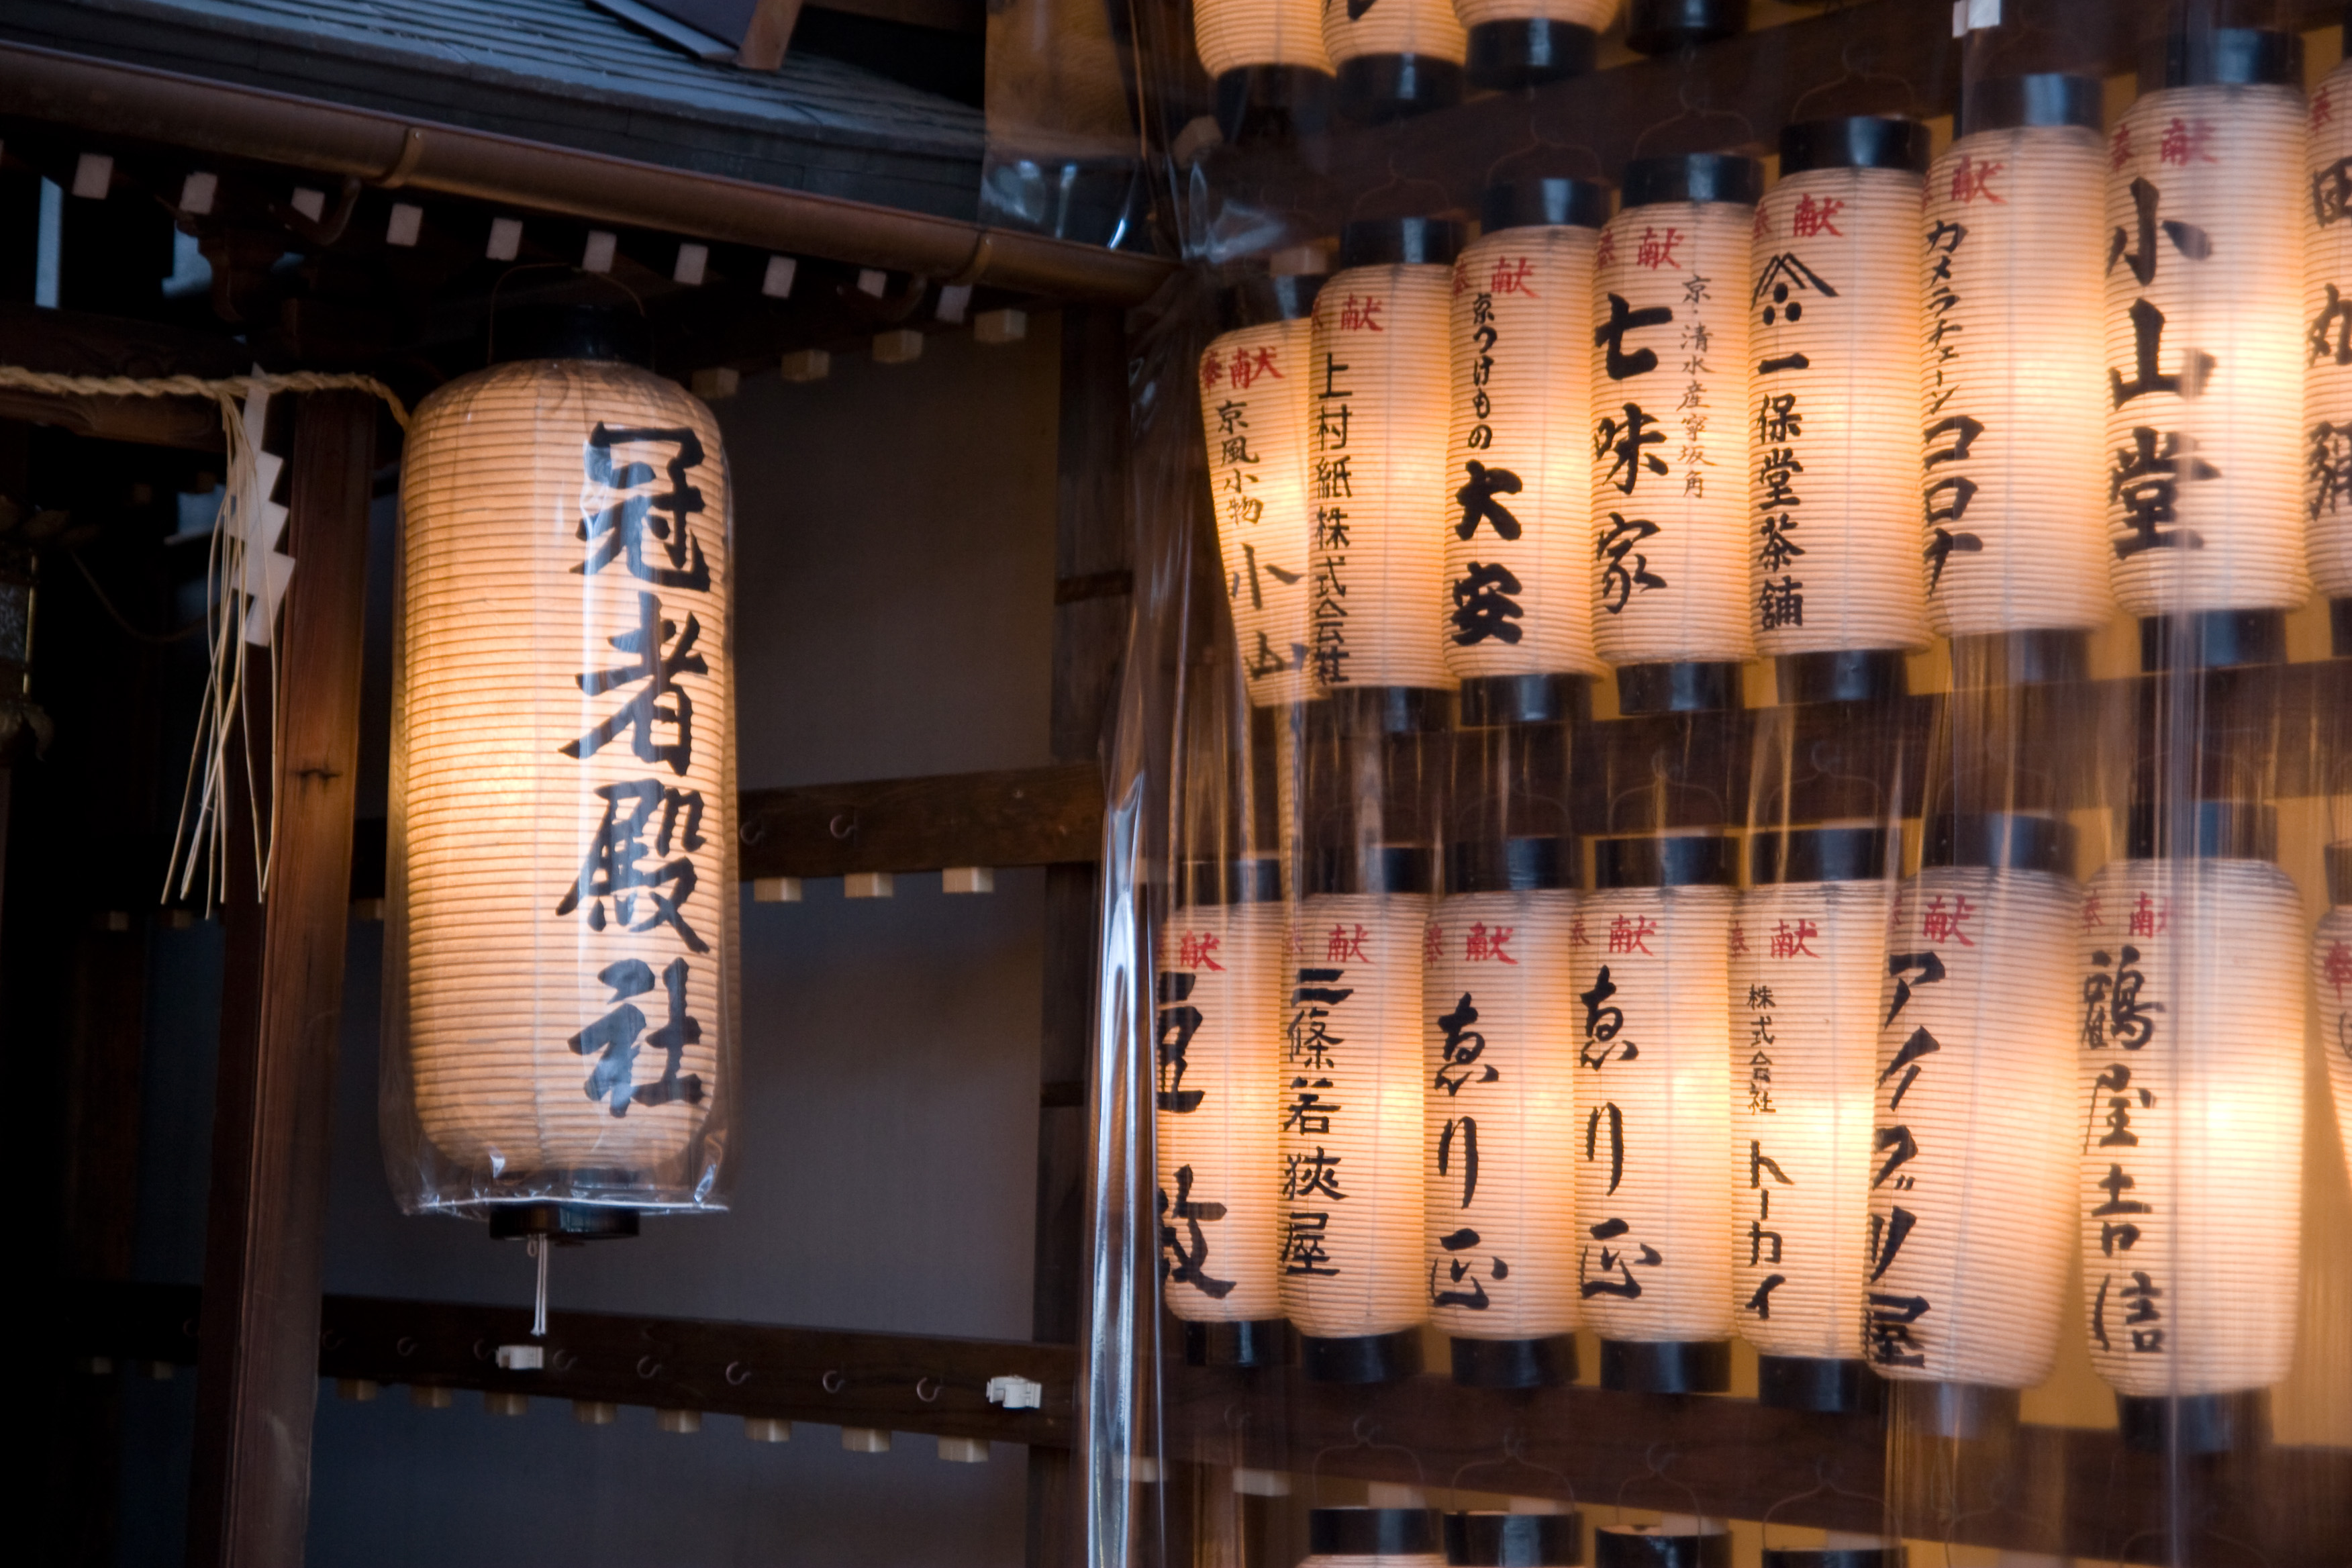 冠者殿社
奉献
京風小物
小山
奉献
上村紙株式会社
奉献
京つけもの
大安
奉献
京・清水産寧坂角
七味家
奉献
一保堂茶舗
奉献
カメラチェーン
コロナ
奉献
小山堂
献
奉献
三條若狭屋
奉献
ゑり正
奉献
ゑり正
奉献
株式会社
トーカイ
奉献
アイヅリ屋
奉献
鶴屋吉信